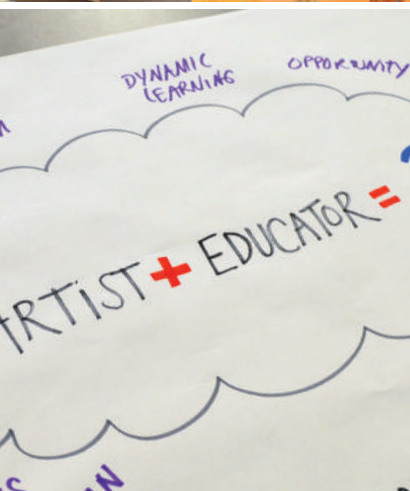 DYNAMIC
LEARNING
OPPORTUNITY
ARTiST + EDUCATOR =